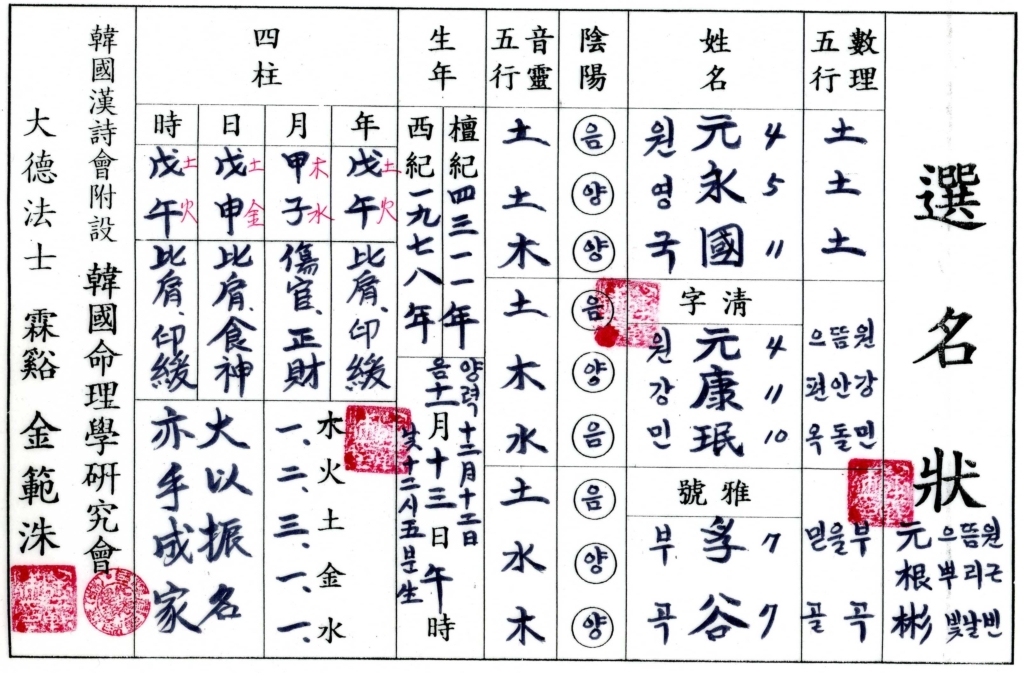 選名狀
元 으뜸원
根 뿌리근
彬 빛날빈
數理五行
土
土
土
으뜸원
편안강
옥돌민
믿을부
골 곡
姓名
원 元 4
영 永 5
국 國 11
清字
원 元 4
강 康 11
민 珉 10
雅號
부 孚 7
곡 谷 7
陰陽
음
양
양
음
양
음
음
양
양
音靈五行
土
土
木
土
木
水
土
水
木
生年
檀紀四三一一年
西紀一九七八年
양력十二月十二日
음十一月十三日午時
낮十二시五분生
四柱
年
戊土午火
比肩、印綬
月
甲木子水
傷官、正財
日
戊土申金
比肩、食神
時
戊土午火
比肩、印綬
木火土金水
一、二、三、一、一、
大以振名
亦手成家
韓國漢詩會附設 韓國命理學研究會
大德法士 霖谿 金範洙